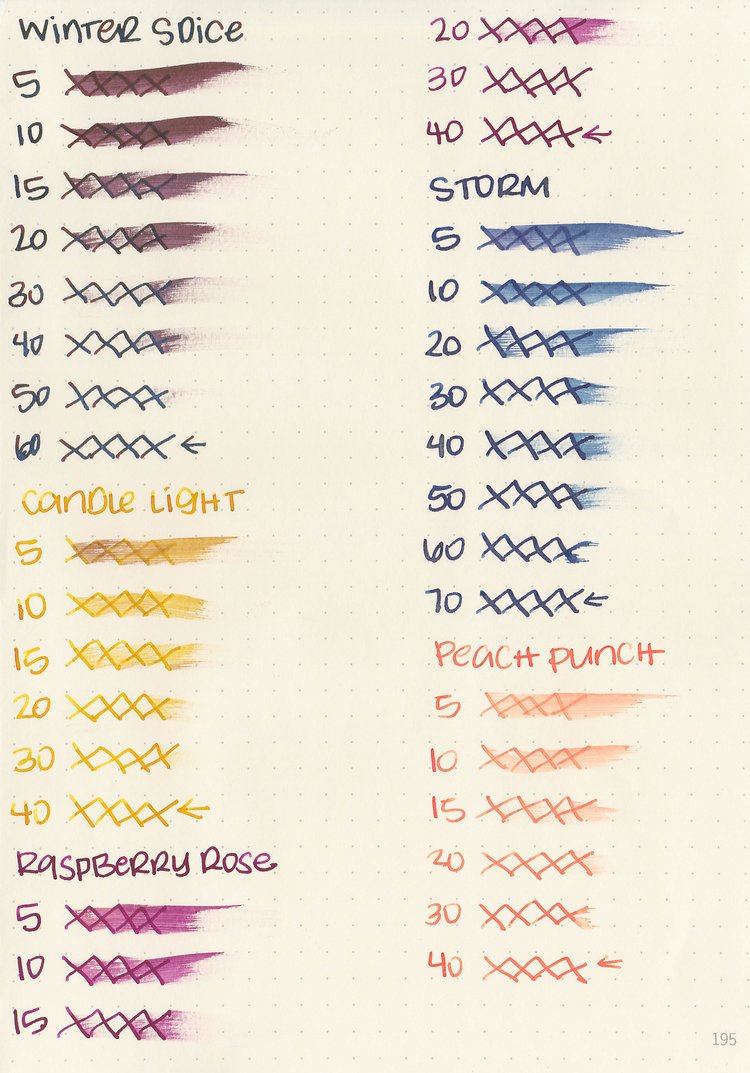 Winter Spice
5 XXXX
10 XXXX
15 XXXX
20 XXXX
30 XXXX
40 XXXX
50 XXXX
60 XXXX ←
Candle Light
5 XXXX
10 XXXX
15 XXXX
20 XXXX
30 XXXX
40 XXXX ←
Raspberry Rose
5 XXXX
10 XXXX
15 XXXX
20 XXXX
30 XXXX
40 XXXX ←
STORM
5 XXXX
10 XXXX
20 XXXX
30 XXXX
40 XXXX
50 XXXX
60 XXXX
70 XXXX ←
Peach Punch
5 XXXX
10 XXXX
15 XXXX
20 XXXX
30 XXXX
40 XXXX ←
195